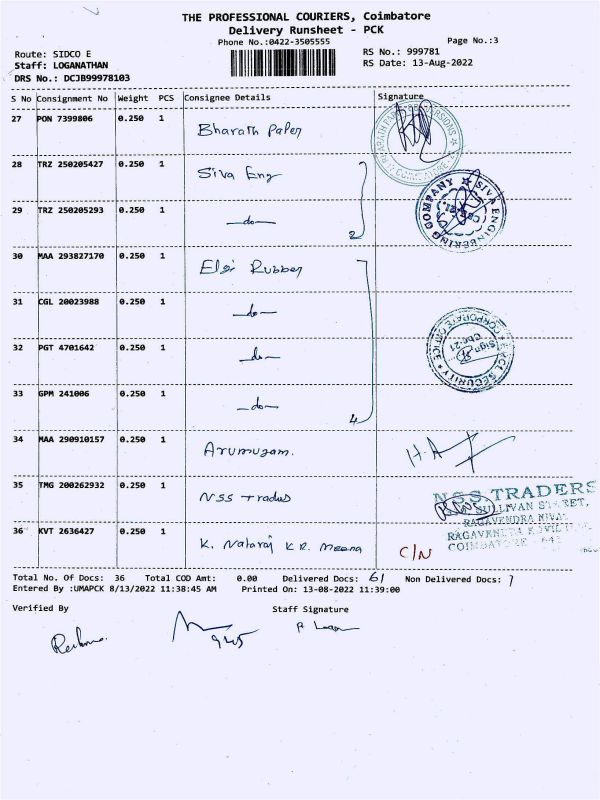 THE PROFESSIONAL COURIERS, Coimbatore
Delivery Runsheet - PCK
Phone No.:0422-3505555
Page No.:3
Route: SIDCO E
RS No.: 999781
Staff: LOGANATHAN
RS Date: 13-Aug-2022
DRS No.: DCJB99978103
S No Consignment No Weight PCS Consignee Details Signature
27 PON 7399806 0.250 1 Bharath Paper
28 TRZ 250205427 0.250 1 Siva Eng
SIVA ENGINEERING COMPANY
29 TRZ 250205293 0.250 1 —do—
2
30 MAA 293827170 0.250 1 Elgi Rubber
31 CGL 20023988 0.250 1 —do—
32 PGT 4701642 0.250 1 —do—
CORPORATE OFFICE
SECURITY
33 GPM 241006 0.250 1 —do—
4
34 MAA 290910157 0.250 1 Arumugam.
35 TMG 200262932 0.250 1 NSS Trades
N.S.S. TRADERS
SULLIVAN STREET,
RAGAVENDRA
COIMBATORE
36 KVT 2636427 0.250 1 K. Nataraj K.R. Meena C/N
Total No. Of Docs: 36 Total COD Amt: 0.00 Delivered Docs: 61 Non Delivered Docs: 7
Entered By :UMAPCK 8/13/2022 11:38:45 AM Printed On: 13-08-2022 11:39:00
Verified By Staff Signature